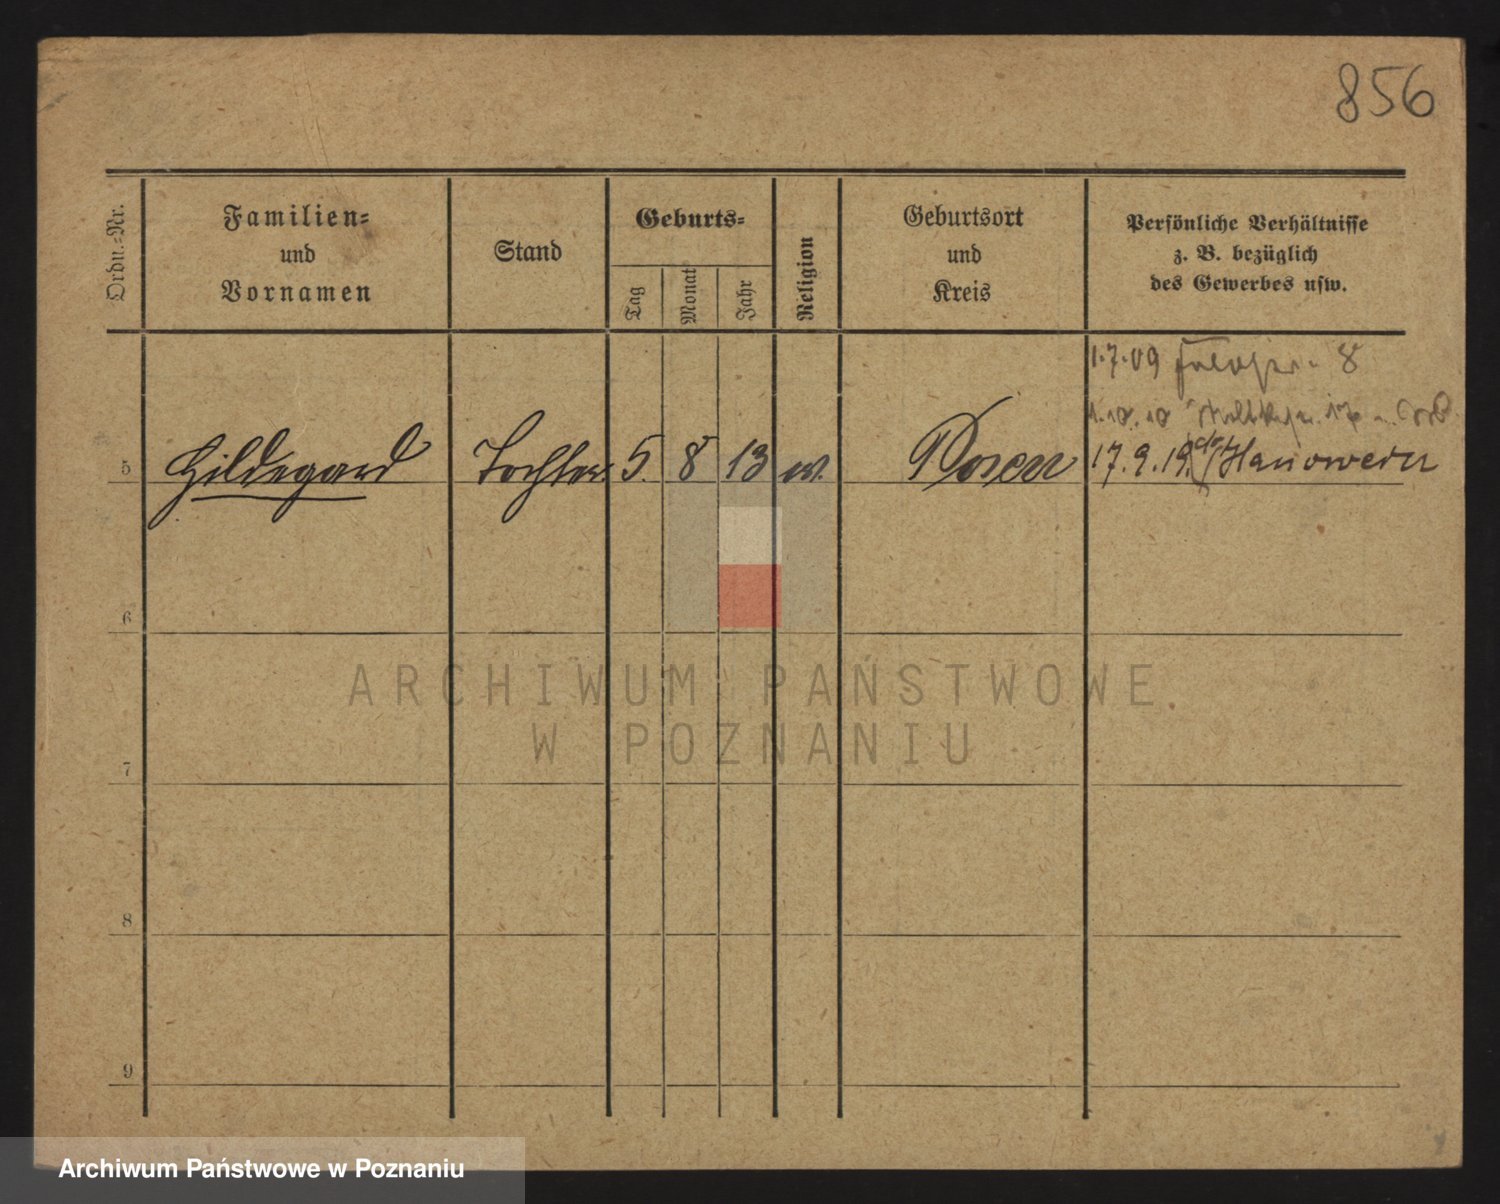 856
Ordn.-Nr.
Familien-
und
Vornamen
Stand
Geburts-
Tag
Monat
Jahr
Religion
Geburtsort
und
Kreis
Persönliche Verhältnisse
z. B. bezüglich
des Gewerbes usw.
1.7.09 8
1.10.10
5 Hildegard Tochter 5. 8 13 w. Posen 17.9.19. Hannover
6
ARCHIWUM PAŃSTWOWE
W POZNANIU
7
8
9
Archiwum Państwowe w Poznaniu